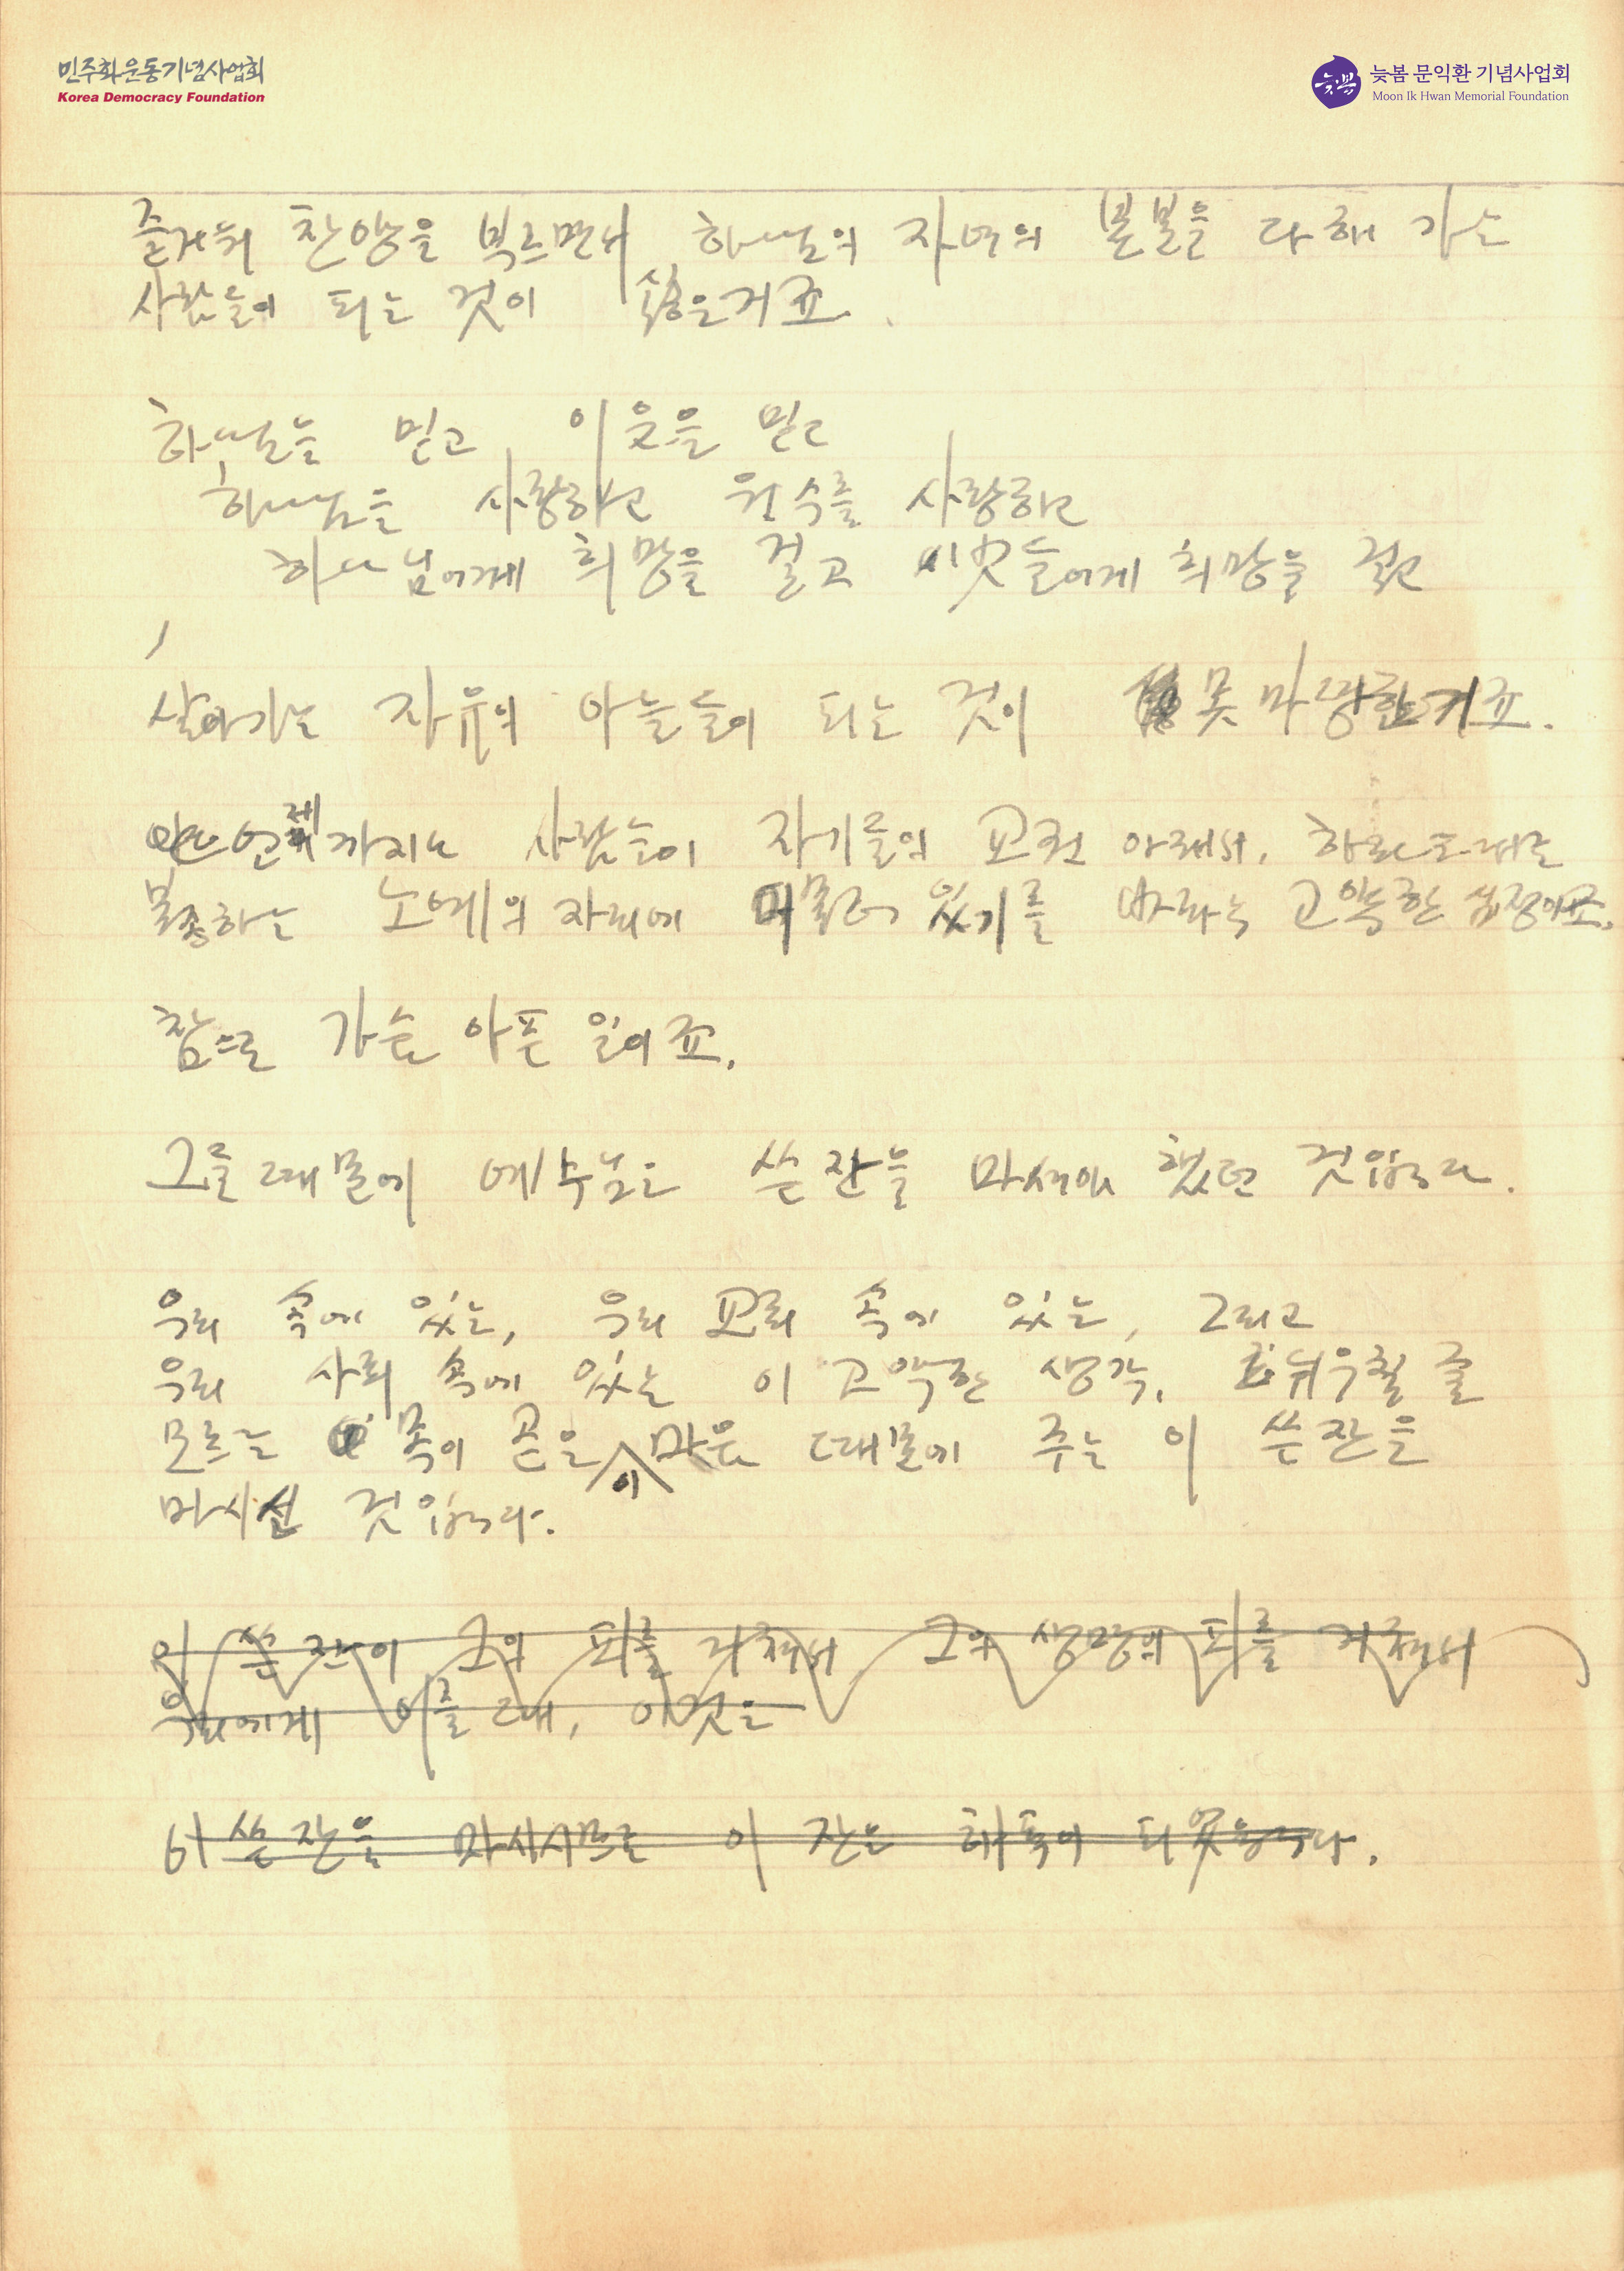 민주화운동기념사업회
Korea Democracy Foundation
늦봄
늦봄 문익환 기념사업회
Moon Ik Hwan Memorial Foundation
즐거히 찬양을 부르면서 하나님의 자녀의 본분을 다해 가는
사람들이 되는 것이 싫은거죠.
하나님을 믿고 이웃을 믿고
하나님을 사랑하고 원수를 사랑하고
하나님에게 희망을 걸고 이웃들에게 희망을 걸고
살아가는 자유의 아들들이 되는 것이 못마땅한거죠.
언제까지나 사람들이 자기들의 교권 아래서,
하는 노예의 자리에 머물러 있기를 바라는 고약한 심정이죠.
참으로 가슴 아픈 일이죠.
그들 때문에 예수님은 쓴 잔을 마셔야 했던 것입니다.
우리 속에 있는, 우리 교회 속에 있는, 그리고
우리 사회 속에 있는 이 고약한 생각, 뉘우칠 줄
모르는 목이 곧은 이 마음 때문에 주는 이 쓴 잔을
마시신 것입니다.
이 쓴 잔이 그의 피를 거쳐서 그의 생명의 피를 거쳐서
우리에게 이를 때, 이것은
이 쓴 잔을 마시시므로 이 잔은 축복이 되었습니다.